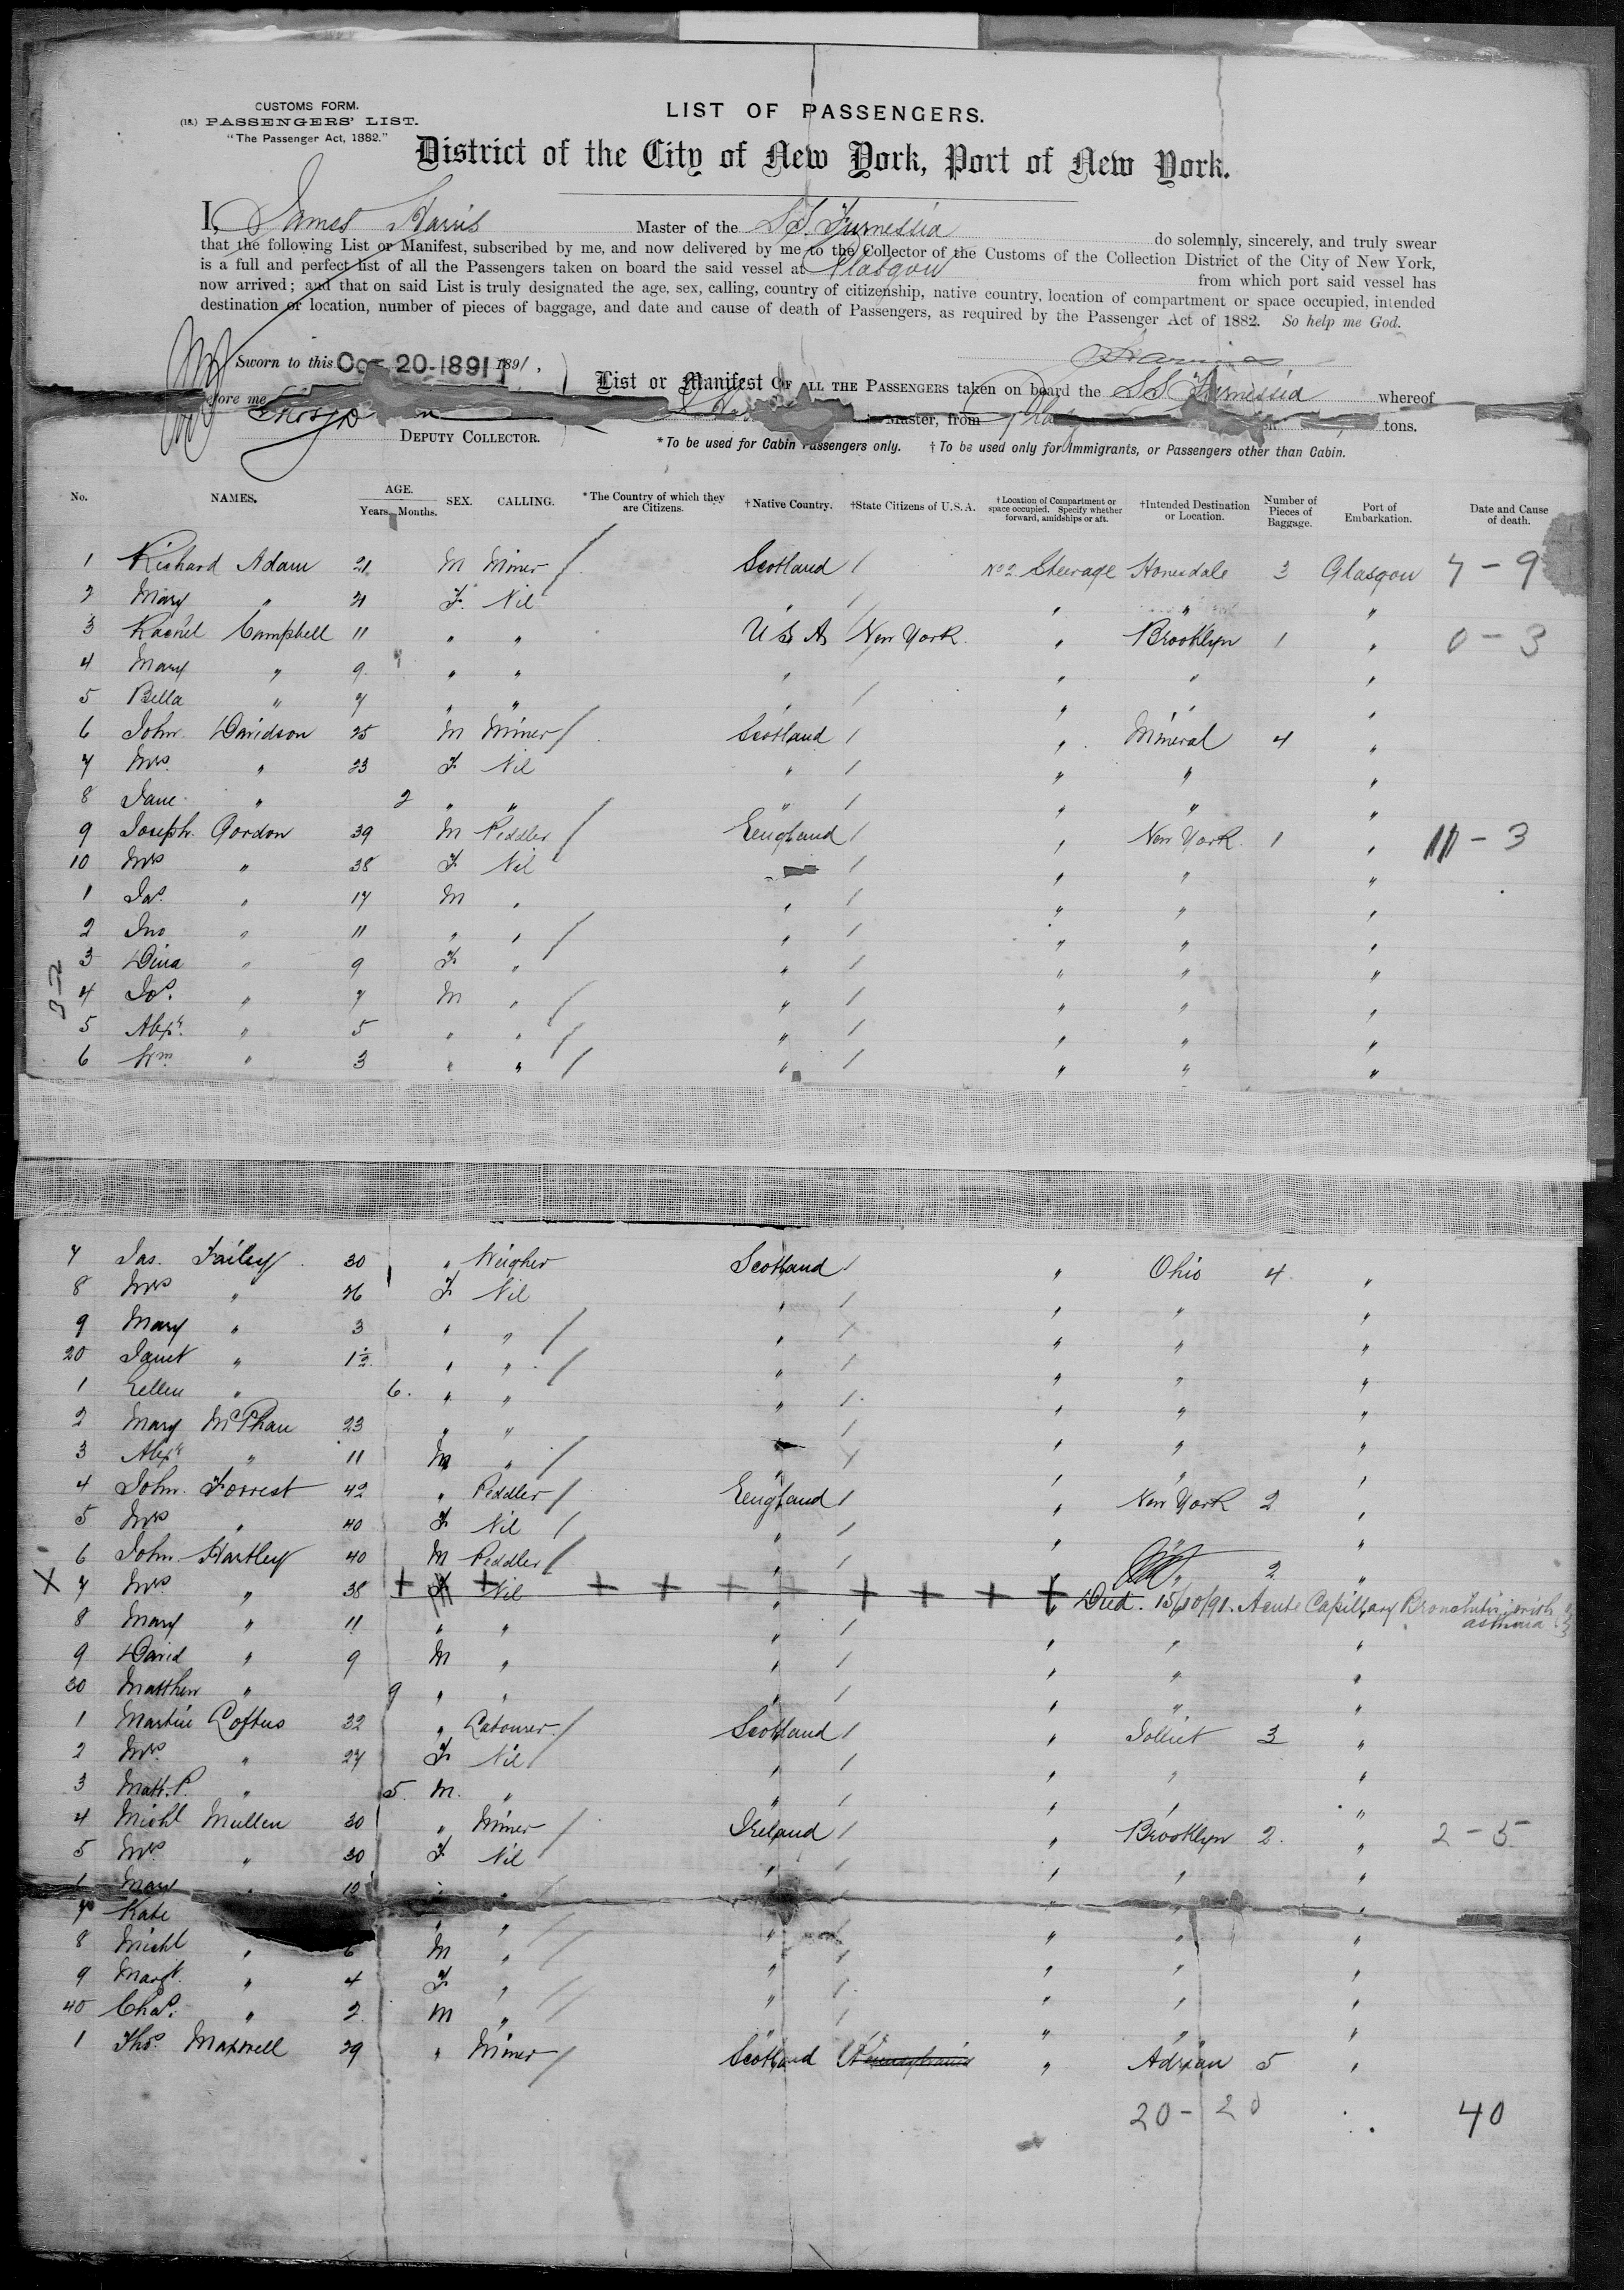 CUSTOMS FORM.
(18.) PASSENGERS' LIST.
"The Passenger Act, 1882."
LIST OF PASSENGERS.
District of the City of New York, Port of New York.
I, James Harris Master of the S.S. Furnessia do solemnly, sincerely, and truly swear
that the following List or Manifest, subscribed by me, and now delivered by me to the Collector of the Customs of the Collection District of the City of New York,
is a full and perfect list of all the Passengers taken on board the said vessel at Glasgow from which port said vessel has
now arrived; and that on said List is truly designated the age, sex, calling, country of citizenship, native country, location of compartment or space occupied, intended
destination or location, number of pieces of baggage, and date and cause of death of Passengers, as required by the Passenger Act of 1882. So help me God.
J Harris
Sworn to this 20-1891 1891,
List or Manifest OF ALL THE PASSENGERS taken on board the S.S. Furnessia whereof
before me
Master, from tons.
DEPUTY COLLECTOR.
* To be used for Cabin Passengers only. † To be used only for Immigrants, or Passengers other than Cabin.
No. NAMES. AGE. Years. Months. SEX. CALLING. * The Country of which they are Citizens. † Native Country. † State Citizens of U.S.A. † Location of Compartment or space occupied. Specify whether forward, amidships or aft. † Intended Destination or Location. Number of Pieces of Baggage. Port of Embarkation. Date and Cause of death.
1 Richard Adam 21 M Miner / Scotland / No 2 Steerage Honesdale 3 Glasgow 7 - 9
2 Mary " 21 F. Nil " / " " "
3 Rachel Campbell 11 " " U S A New York " Brooklyn 1 " 0 - 3
4 Mary " 9 " " " / " " "
5 Bella " 7 " " " / " " "
6 John Davidson 25 M Miner / Scotland / " Mineral 4 "
7 Mrs. " 23 F Nil " / " " "
8 Jane " 2 " " " / " " "
9 Joseph Gordon 39 M Peddler / England / " New York 1 " - 3
10 Mrs " 38 F Nil / " " "
1 Jas. " 17 M " " / " " "
2 Jno " 11 " " / " / " " "
3 Dina " 9 F " " / " " "
4 Jos. " 7 M " / " / " " "
5 Alexr. " 5 " " / " / " " "
6 Wm. " 3 " " / " / " " "
3-2
7 Jas. Failey 30 " Weigher Scotland / " Ohio 4 "
8 Mrs " 26 F Nil " / " " "
9 Mary " 3 " " / " / " " "
20 Janet " 1½ " " / " / " " "
1 Ellen " 6. " " " / " " "
2 Mary McPhau 23 " " / " " "
3 Alexr " 11 M " / " / " " "
4 John Forrest 42 " Peddler / England / " New York 2 "
5 Mrs " 40 F Nil / " / " " "
6 John Hartley 40 M Peddler / " / " " 2 "
X 7 Mrs " 38 + F + Nil + + + + + + + + " Died. 15/10/91. Acute Capillary Bronchitis with asthma
8 Mary " 11 " " " / " " "
9 David " 9 M " " / " " "
30 Matthew " 9 " " " / " " "
1 Martin Loftus 32 " Labourer / Scotland / " Jolliet 3 "
2 Mrs. " 27 F Nil " / " " "
3 Matt. P. " 5. M. " " / " " "
4 Michl Mullen 30 " Miner / Ireland / " Brooklyn 2. " 2 - 5
5 Mrs. " 30 F Nil " / " " "
Mary " 10 " " / " "
7 Kate " " / " / " " "
8 Michl " 6 M " / " / " " "
9 Margt. " 4 F " / " / " " "
40 Chas. " 2 M " / " / " " "
1 Thos. Maxwell 29 " Miner / Scotland Pennsylvania " Adrian 5 "
20 - 20 40